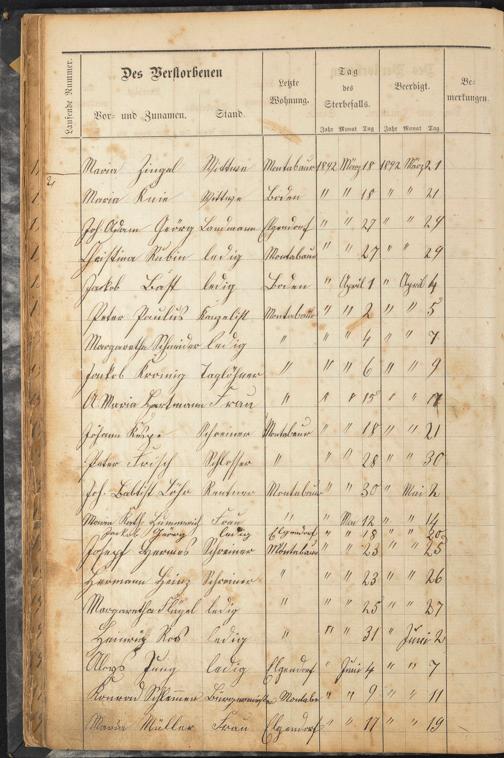 Laufende Nummer.
Des Verstorbenen
Vor- und Zunamen. Stand.
Letzte Wohnung.
Tag des Sterbefalls.
Beerdigt.
Be-
merkungen.
Jahr Monat Tag Jahr Monat Tag
Maria Zingel Wittwe Montabaur 1892 März 18 1892 März 21
Maria Knie Wittwe Boden " " 18 " " 21
Joh. Adam Georg Landmann Elgendorf " " 27 " " 29
Christina Rubin ledig Montabaur " " 27 " " 29
Jakob Bast ledig Boden " April 1 " April 4
Peter Paulus Kanzelist Montabaur " " 2 " " 5
Margaretha Schneider ledig " " " 4 " " 7
Jakob Taglöhner " " " 6 " " 9
A Maria Hartmann Frau " " " 15 " "
Johann Schreiner Montabaur " " 18 " " 21
Peter Frisch Schlosser " " " 28 " " 30
Joh. Babtist Löhr Rentner Montabaur " " 30 " Mai 2
Maria Kath. Frau " " Mai 12 " " 14
Jakob Georg ledig Elgendorf " " 18 " " 20
Joseph Hermes Schreiner Montabaur " " 23 " " 25
Hermann Heinz Schreiner " " " 23 " " 26
Margaretha Flügel ledig " " " 25 " " 27
Heinrich Ros ledig " " " 31 " Juni 2
Aloys Jung ledig Elgendorf " Juni 4 " " 7
Konrad Bürgermeister Montabaur " " 9 " " 11
Maria Müller Frau Elgendorf " " 17 " " 19